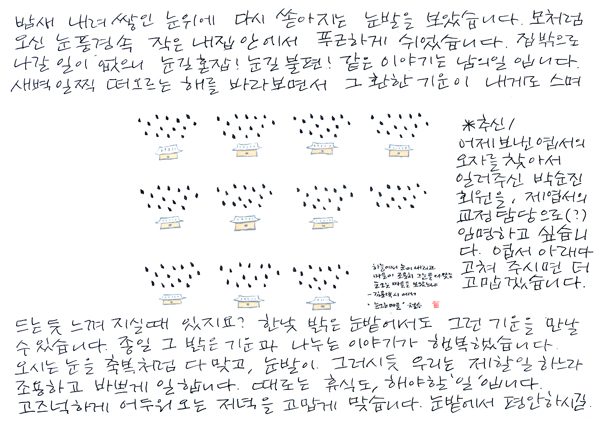 밤새 내려 쌓인 눈위에 다시 쏟아지는 눈발을 보았습니다. 모처럼
오신 눈풍경속 작은 내집안에서 푸근하게 쉬었습니다. 집밖으로
나갈 일이 없으니 눈길혼잡! 눈길불편! 같은 이야기는 남의일 입니다.
새벽일찍 떠오르는 해를 바라보면서 그 환한 기운이 내게로 스며
*추신/
어제 보낸 엽서의
오자를 찾아서
일러주신 박순진
회원을, 제엽서의
교정담당으로(?)
임명하고 싶습니
다. 엽서 아래다
고쳐 주시면 더
고맙겠습니다.
하늘에서 눈이 내리고
눈오는 마을을 보았느냐
드는듯 느껴 지실때 있지요? 한낮 밝은 눈밭에서도 그런 기운을 만날
수있습니다. 종일 그 밝은 기운과 나누는 이야기가 행복했습니다.
오시는 눈을 축복처럼 다 맞고, 눈발이 그러시듯 우리는 제할일 하느라
조용하고 바쁘게 일합니다. 때로는 휴식도, 해야할'일'입니다.
고즈넉하게 어두워 오는 저녁을 고맙게 맞습니다. 눈밭에서 평안하시길.